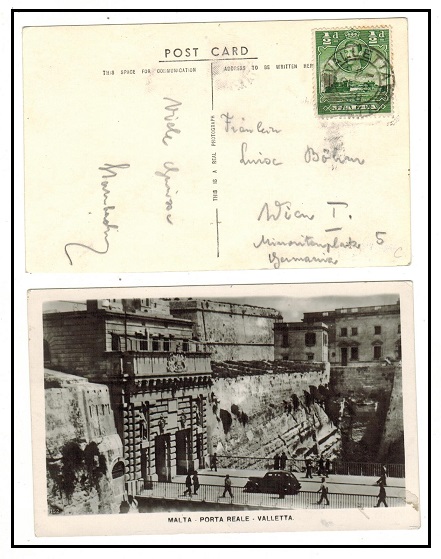 POST CARD
THIS SPACE FOR COMMUNICATION
ADDRESS TO BE WRITTEN HERE
½d
½d
MALTA
THIS IS A REAL PHOTOGRAPH
Viele Grüsse
Fräulein
Luise Böhm
Wien I.
Minoritenplatz 5
Germania
C
MALTA - PORTA REALE - VALLETTA.